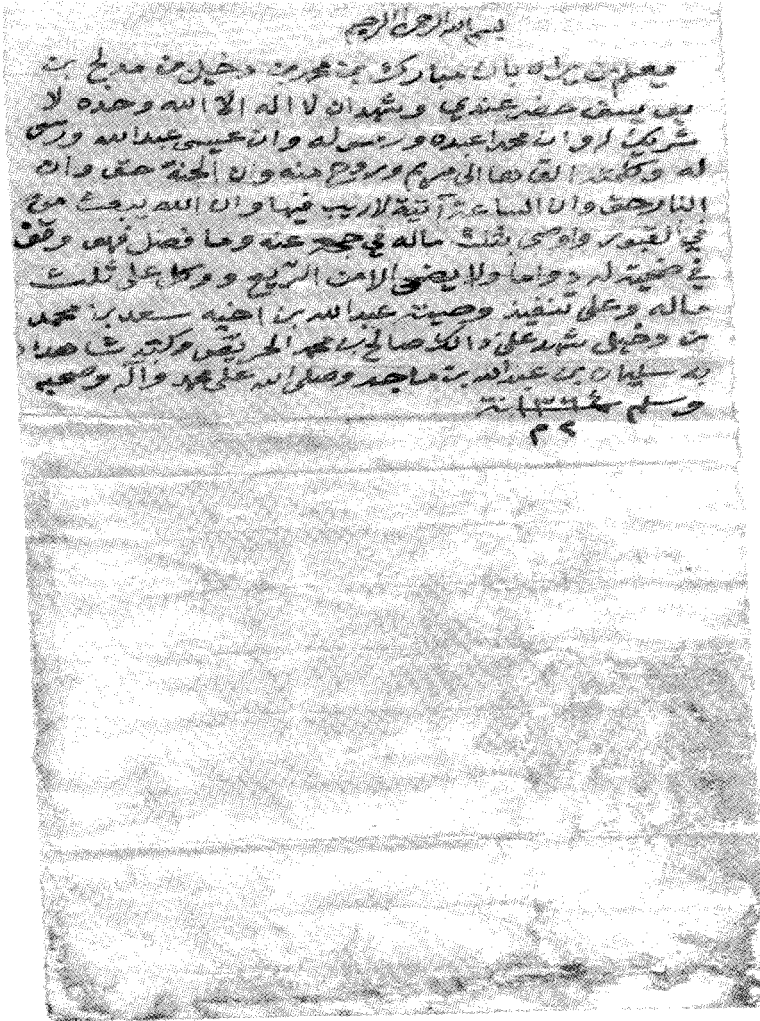 بسم الله الرحمن الرحيم
يعلم من يراه بان مبارك بن محمد بن دخيل من مدلج بن
حضر عندي وشهد ان لا اله الا الله وحده لا
شريك له وان محمدا عبده ورسوله وان عيسى عبدالله ورسو
له وكلمته القاها الى مريم وروح منه وان الجنة حق وان
النار حق وان الساعة آتية لاريب فيها وان الله يبعث من
في القبور واوصى بثلث ماله في حجج عنه وما فضل فهو وقف
في ضحية له دواما ولا يضحى الا من الريع ووكل على ثلث
ماله وعلى تنفيذ وصيته عبدالله بن اخيه سعد بن محمد
بن دخيل شهد على ذالك صالح بن محمد الحريقي وكتبه شاهدا
به سليمان بن عبدالله بن ماجد وصلى الله على محمد وآله وصحبه
وسلم سنة
٢ م